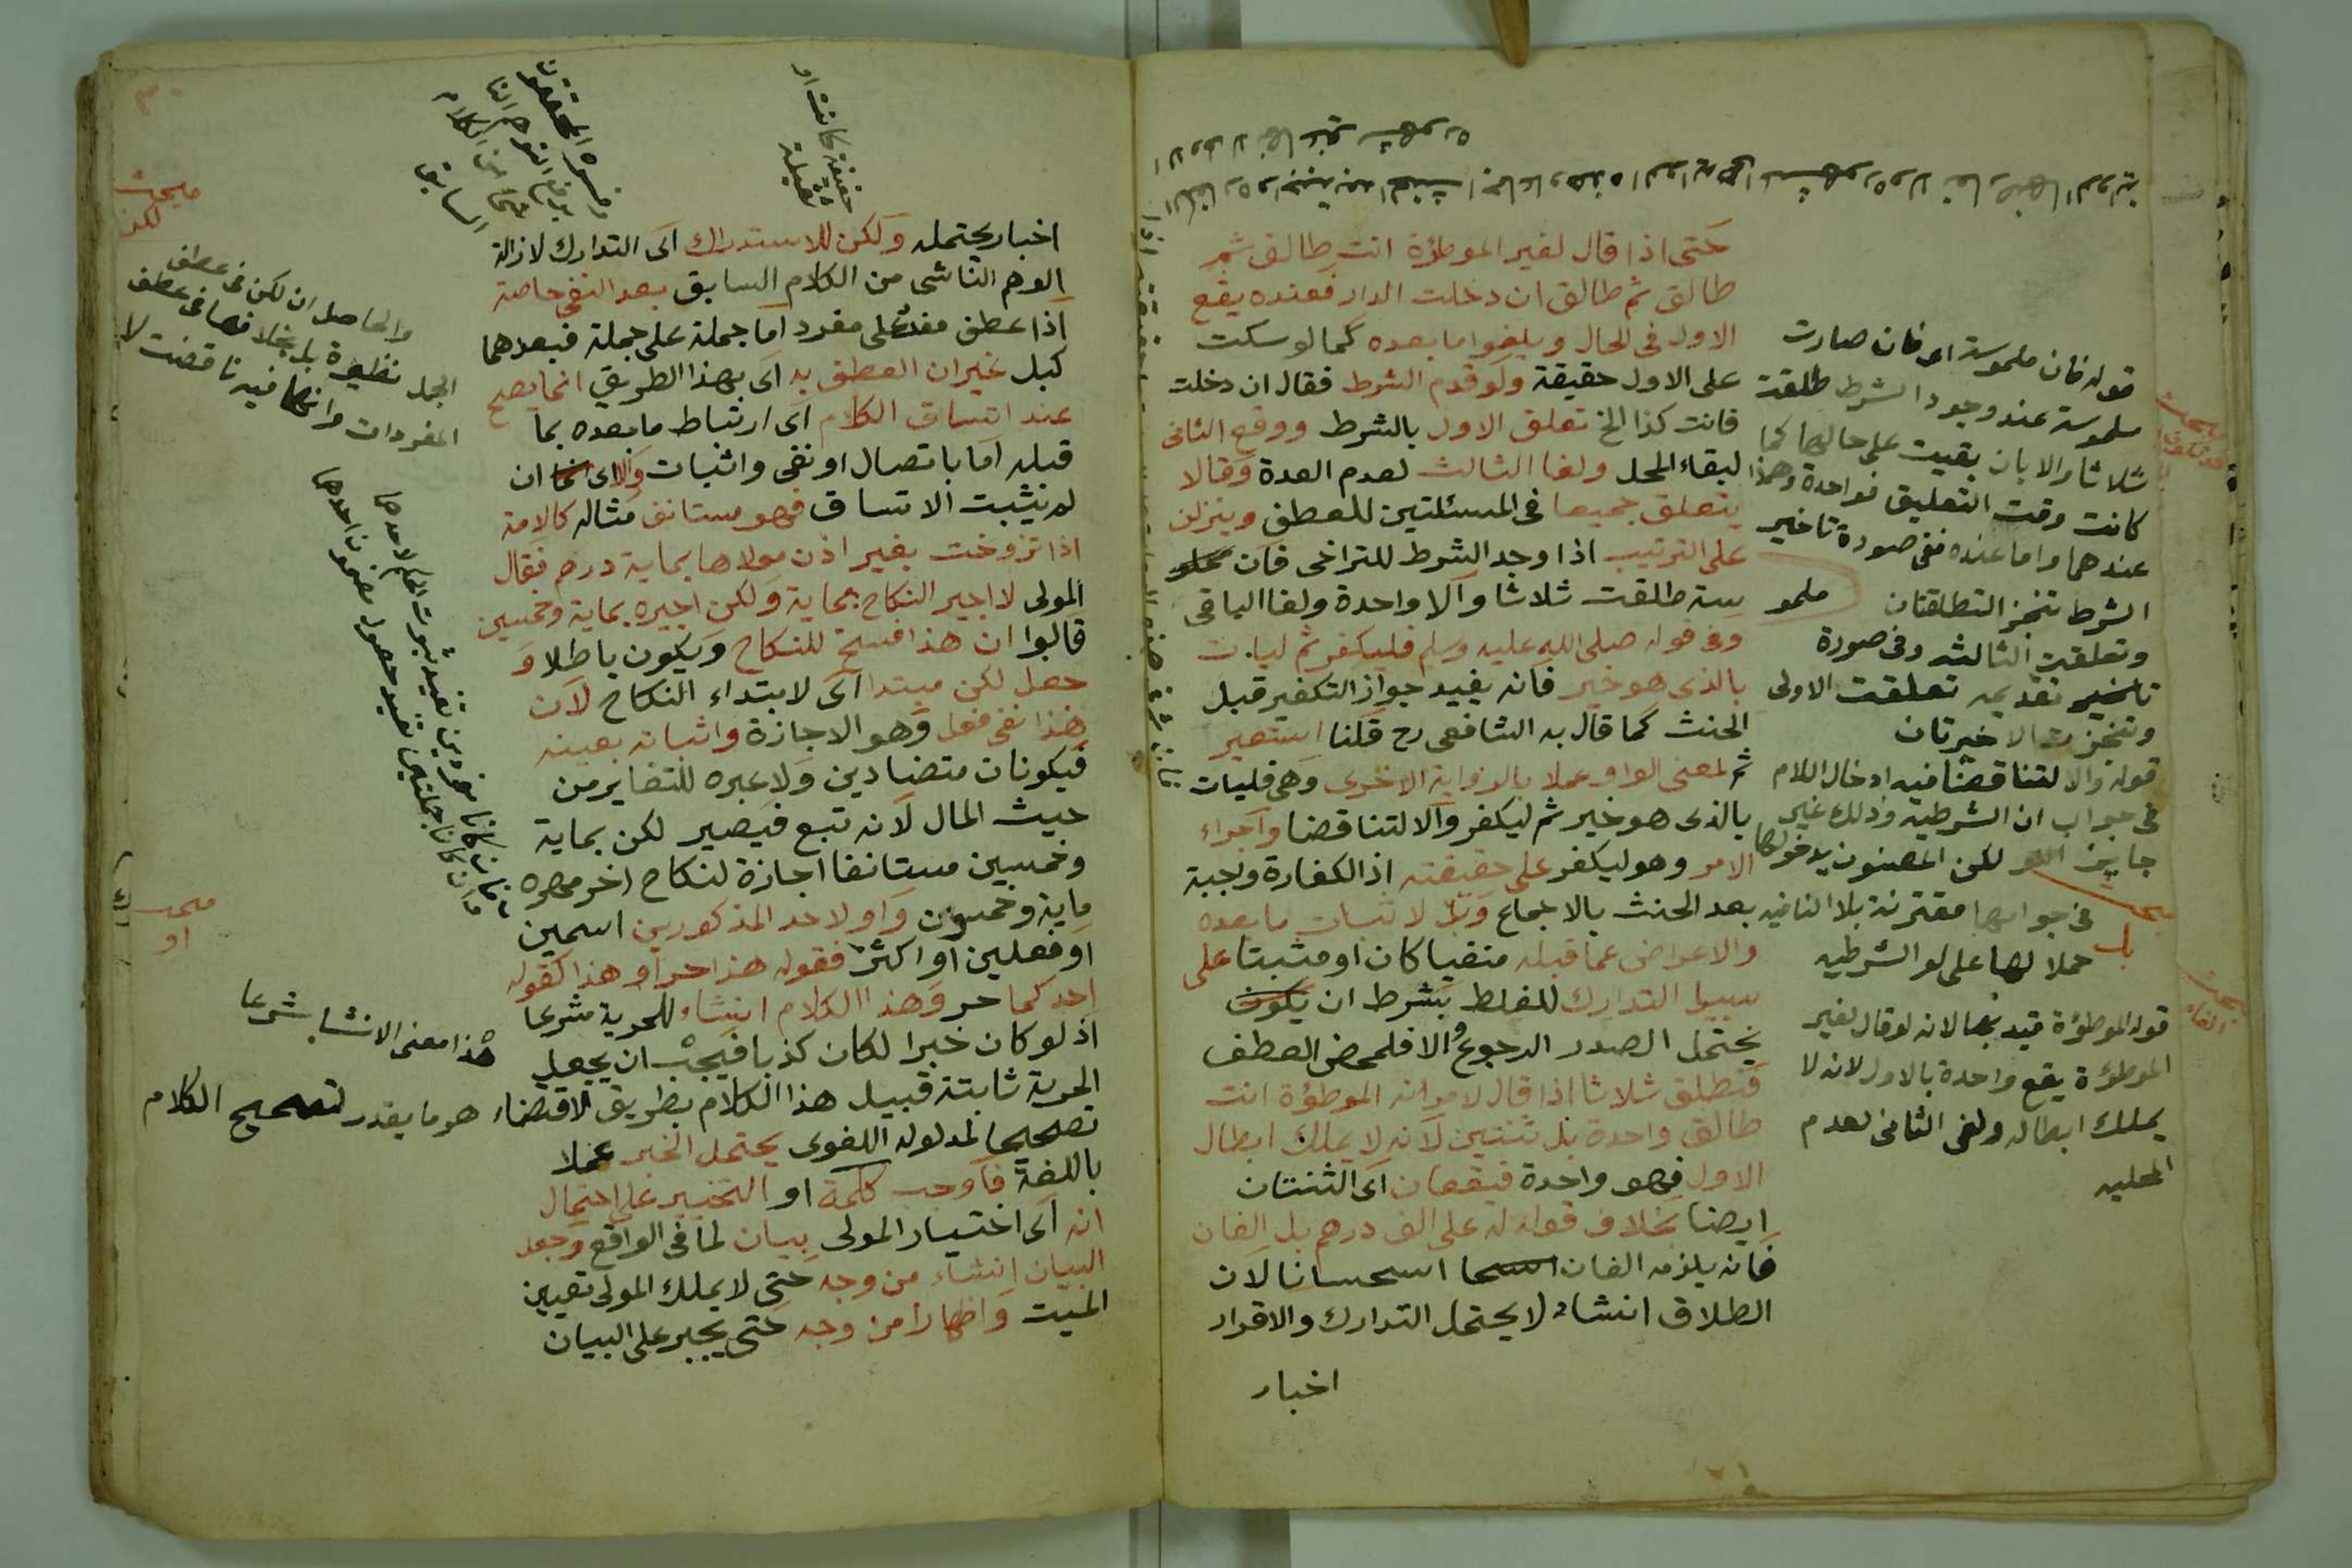 حتى اذا قال لغير الموطؤة انت طالق ثم
طالق ثم طالق ان دخلت الدار فعنده يقع
الاول فى الحال ويلغوا ما بعده كما لو سكت
على الاول حقيقة ولو قدم الشرط فقال ان دخلت
فانت كذا الخ تعلق الاول بالشرط ووقع الثانى
لبقاء المحل ولغا الثالث لعدم العدة وقالا
يتعلق جميعا فى المسئلتين للعطف وينزلن
على الترتيب اذا وجد الشرط للتراخى فان ملمو
سة طلقت ثلاثا والا واحدة ولغا الباقى
وفى قوله صلى الله عليه وسلم فليكفر ثم ليات
بالذى هو خير فانه يفيد جواز التكفير قبل
الحنث كما قال به الشافعى رح قلنا استعير
ثم لمعنى الواو عملا بالرواية الاخرى وهى فليات
بالذى هو خير ثم ليكفر والا لتناقضا واجراء
الامر وهو ليكفر على حقيقته اذ الكفارة وجبة
بعد الحنث بالاجماع وبل لاثبات ما بعده
والاعراض عما قبله منفيا كان او مثبتا على
سبيل التدارك للغلط بشرط ان يكون
يحتمل الصدر الرجوع والا فلمحض العطف
فتطلق ثلاثا اذا قال لامراته الموطؤة انت
طالق واحدة بل ثنتين لانه لا يملك ابطال
الاول فهو واحدة فيقعان اى الثنتان
ايضا بخلاف قوله له على الف درهم بل الفان
فانه يلزمه الفان استحسانا لان
الطلاق انشاء لا يحتمل التدارك والاقرار
اخبار
قوله فان ملموسة اى فان صارت
ملموسة عند وجود الشرط طلقت
ثلاثا والا بان بقيت على حالها كما
كانت وقت التعليق فواحدة وهذا
عندهما واما عنده ففى صورة تاخير
الشرط تنجز التطلقتان
ملمو
وتعلقت الثالثه وفى صورة
تقديمه تعلقت الاولى
وتنجزت الاخيرتان
قوله والا لتناقضا فيه ادخال اللام
فى جواب ان الشرطيه وذلك غير
جايز لكن المصنفون يدخولها
فى جوابها مقترنة بلا النافيه
حملا لها على لو الشرطيه
قوله الموطؤة قيد بها لانه لو قال لغير
الموطؤة يقع واحدة بالاول لانه لا
يملك ابطاله ولغى الثانى لعدم
المحليه
مبحث
بل
اخبار يحتمله ولكن للاستدراك اى التدارك لازالة
الوهم الناشى من الكلام السابق بعد النفى خاصة
اذا عطف مفرد على مفرد اما جملة على جملة فبعدهما
كبل غير ان العطف به اى بهذا الطريق انما يصح
عند اتساق الكلام اى ارتباط ما بعده بما
قبله اما باتصال او نفى واثبات والا اى ان
لم يثبت الاتساق فهو مستانف مثاله كالامة
اذا تزوجت بغير اذن مولاها بماية درهم فقال
المولى لا اجيز النكاح بماية ولكن اجيزه بماية وخمسين
قالوا ان هذا فسخ للنكاح ويكون باطلا و
حعل لكن مبتدا اى لابتداء النكاح لان
هذا نفى فعل وهو الاجازة واثباته بعينه
فيكونان متضادين ولا عبره للتغاير من
حيث المال لانه تبع فيصير لكن بماية
وخمسين مستانفا اجازة لنكاح اخر مهره
ماية وخمسون واو لاحد المذكورين اسمين
او فعلين او اكثر فقوله هذا حر او هذا كقوله
احدكما حر وهذا الكلام انشاء للحرية شرعا
اذ لو كان خبرا لكان كذبا فيجب ان يجعل
الحرية ثابتة قبيل هذا الكلام بطريق الاقتضاء
تصحيحا لمدلوله اللغوى يحتمل الخبر عملا
باللغة فاوجب كلمة او التخيير على احتمال
انه اى اختيار المولى بيان لما فى الواقع وجعل
البيان انشاء من وجه حتى لا يملك المولى تعيين
الميت واظهارا من وجه حتى يجبر على البيان
مبحث
لكن
والحاصل ان لكن فى عطف
الجمل نظيرة بل بخلافها فى عطف
المفردات وانها فيه ناقضت لا
مبحث
او
هذا معنى الانشاء شرعا
هو ما يقدر لتصحيح الكلام
خفيفة كانت او
ثقيلة